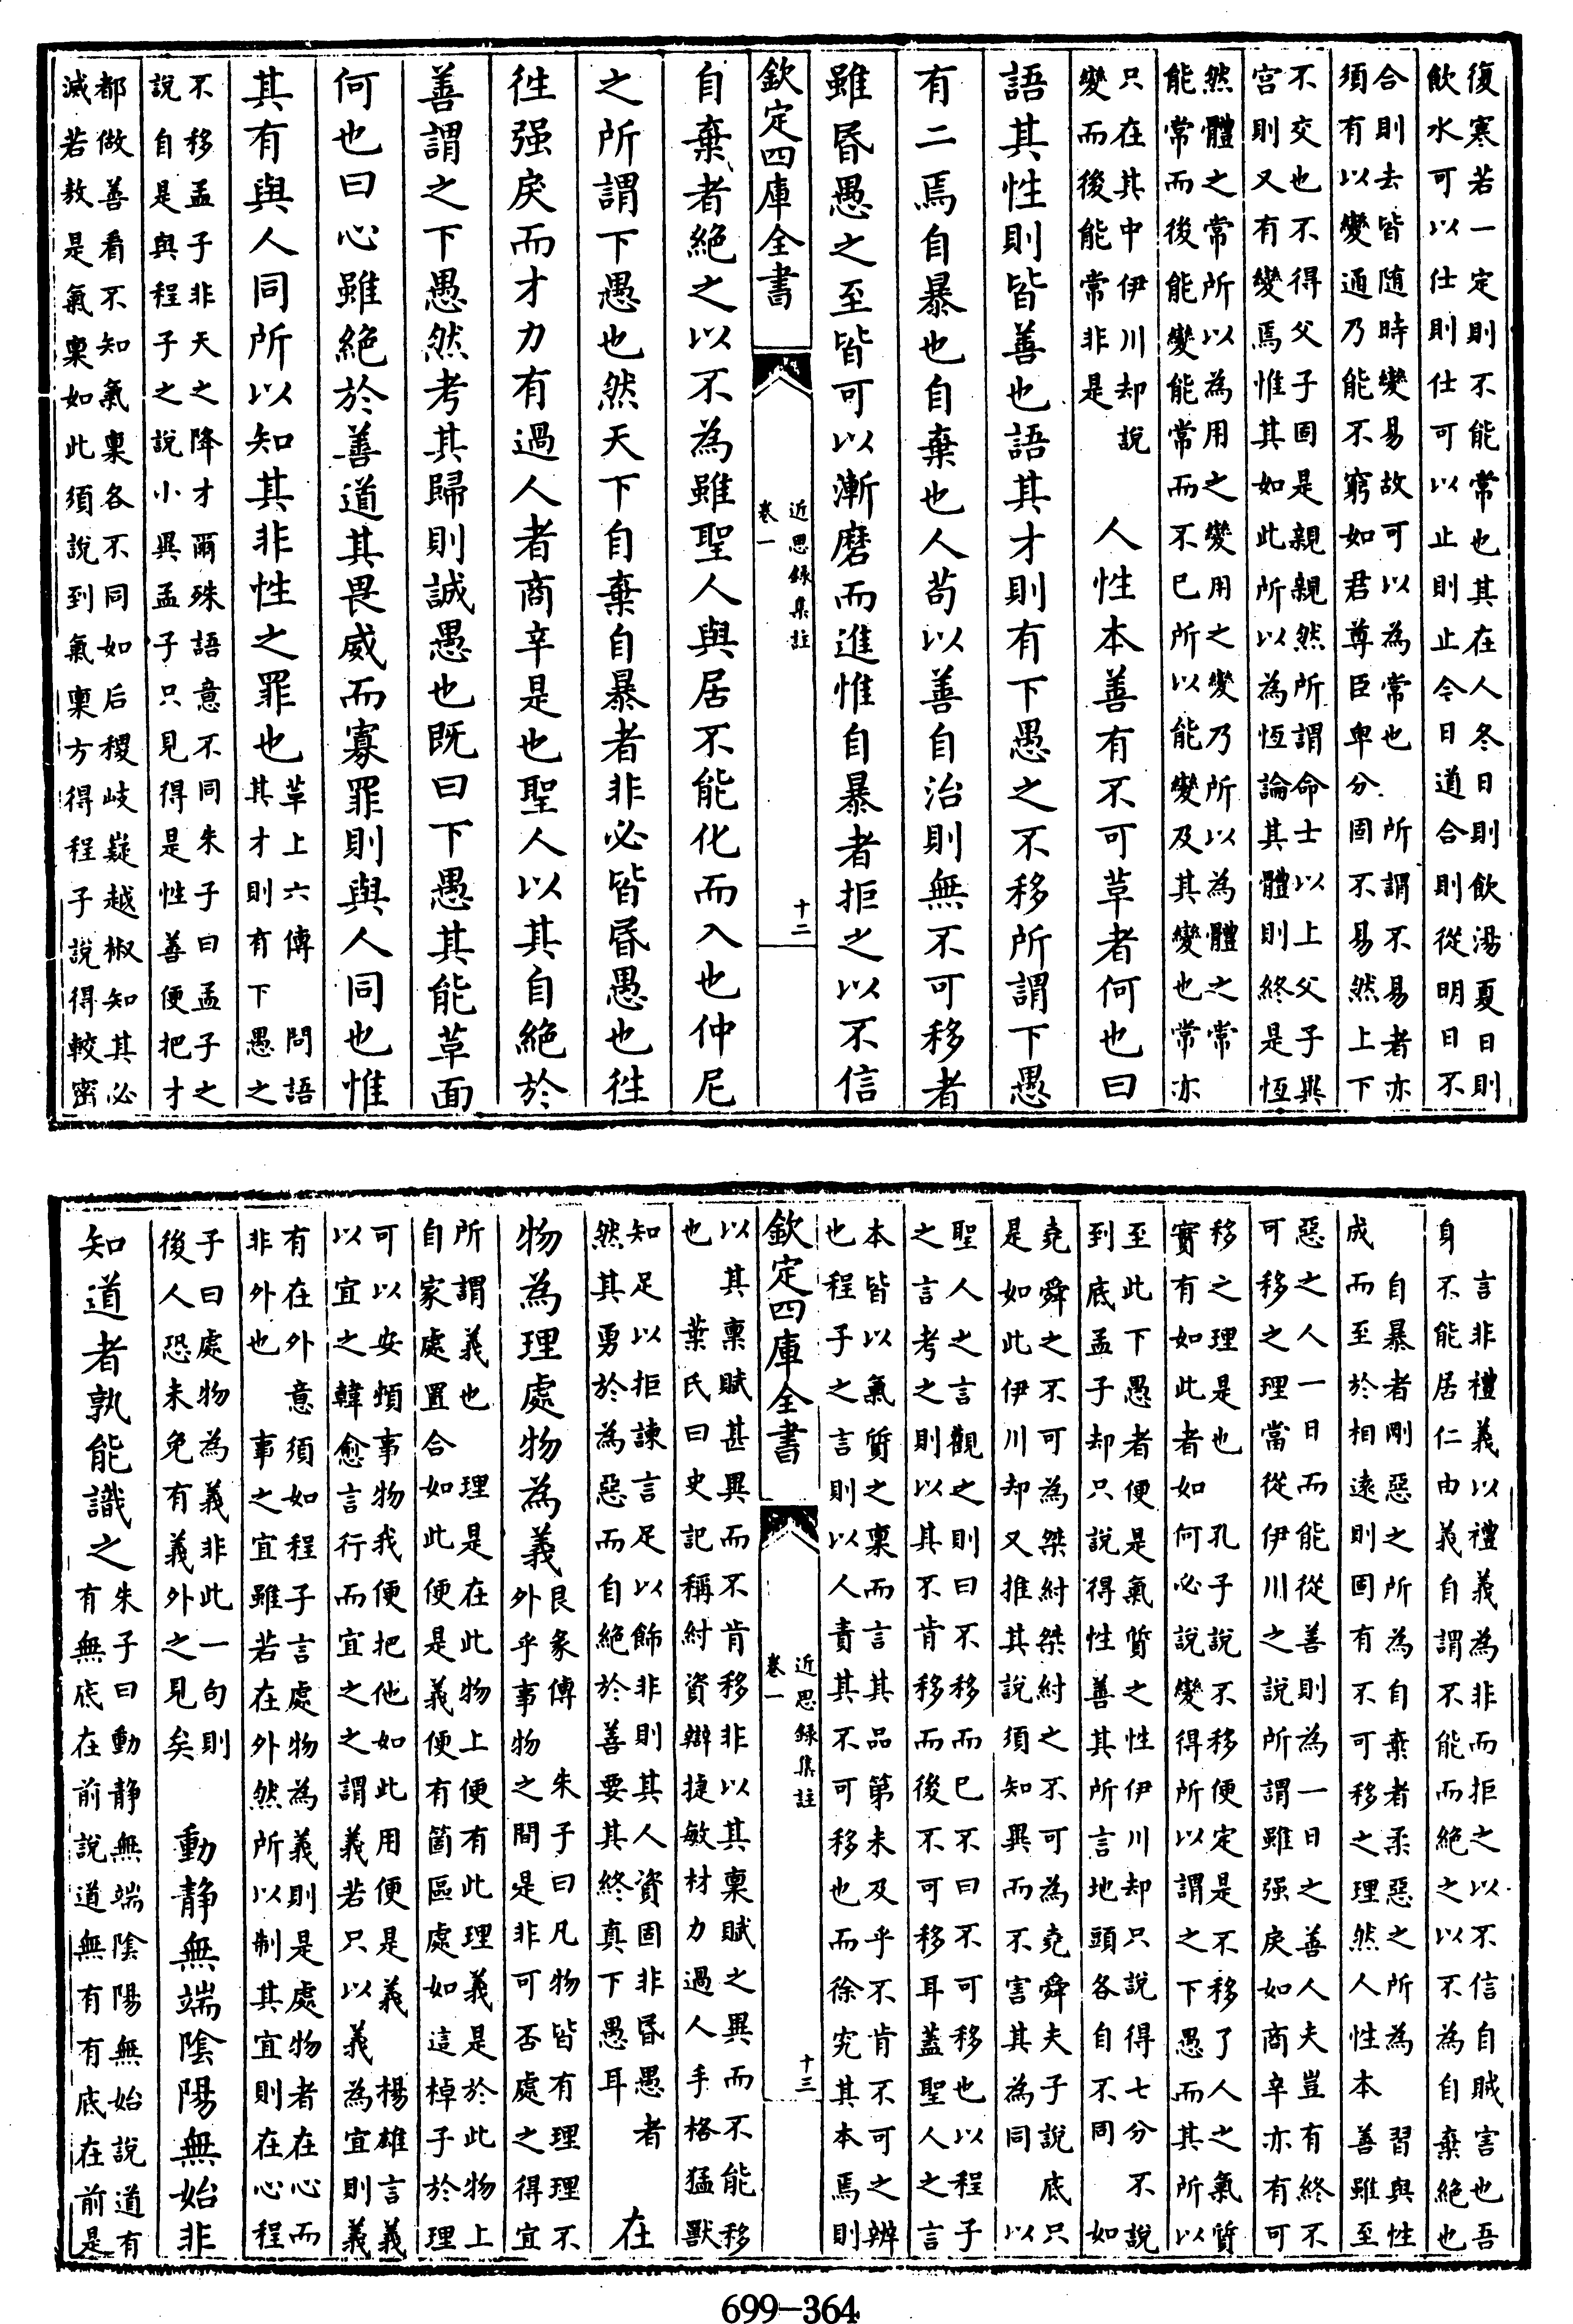 復寒若一定則不能常也其在人冬日則飲湯夏日則
飲水可以仕則仕可以止則止今日道合則從明日不
合則去皆随時變易故可以為常也 所謂不易者亦
須有以變通乃能不窮如君尊臣卑分固不易然上下
不交也不得父子固是親親然所謂命士以上父子異
宫則又有變焉惟其如此所以為恆論其體則終是恆
然體之常所以為用之變用之變乃所以為體之常
能常而後能變能常而不已所以能變及其變也常亦
只在其中伊川却說
變而後能常非是
人性本善有不可草者何也曰
語其性則皆善也語其才則有下愚之不移所謂下愚
有二焉自暴也自棄也人苟以善自治則無不可移者
雖昏愚之至皆可以漸磨而進惟自暴者拒之以不信
欽定四庫全書
近思録集註
卷一
十二
自棄者絶之以不為雖聖人與居不能化而入也仲尼
之所謂下愚也然天下自棄自暴者非必皆昏愚也徃
徃强戾而才力有過人者商辛是也聖人以其自絶於
善謂之下愚然考其歸則誠愚也既曰下愚其能草面
何也曰心雖絶於善道其畏威而寡罪則與人同也惟
其有與人同所以知其非性之罪也
草上六傳 問語
其才則有下愚之
不移孟子非天之降才爾殊語意不同朱子曰孟子之
說自是與程子之說小異孟子只見得是性善便把才
都做善看不知氣稟各不同如后稷岐嶷越椒知其必
滅若敖是氣稟如此須說到氣稟方得程子說得較密
言非禮義以禮義為非而拒之以不信自賊害也吾
身不能居仁由義自謂不能而絶之以不為自棄絶也
自暴者剛惡之所為自棄者柔惡之所為 習與性
成而至於相遠則固有不可移之理然人性本善雖至
惡之人一日而能從善則為一日之善人夫豈有終不
可移之理當從伊川之說所謂雖强戾如商辛亦有可
移之理是也 孔子說不移便定是不移了人之氣質
實有如此者如何必說變得所以謂之下愚而其所以
至此下愚者便是氣質之性伊川却只說得七分不說
到底孟子却只說得性善其所言地頭各自不同 如
堯舜之不可為桀紂桀紂之不可為堯舜夫子說底只
是如此伊川却又推其說須知異而不害其為同 以
聖人之言觀之則曰不移而已不曰不可移也以程子
之言考之則以其不肯移而後不可移耳蓋聖人之言
本皆以氣質之稟而言其品第未及乎不肯不可之辨
也程子之言則以人責其不可移也而徐究其本焉則
欽定四庫全書
近思録集註
卷一
十三
以其稟賦甚異而不肯移非以其稟賦之異而不能移
也 葉氏曰史記稱紂資辯捷敏材力過人手格猛獸
知足以拒諫言足以飾非則其人資固非昏愚者
然其勇於為惡而自絶於善要其終真下愚耳
在
物為理處物為義
艮彖傳 朱子曰凡物皆有理理不
外乎事物之間是非可否處之得宜
所謂義也 理是在此物上便有此理義是於此物上
自家處置合如此便是義便有箇區處如這棹子於理
可以安頓事物我便把他如此用便是義 楊雄言義
以宜之韓愈言行而宜之之謂義若只以義為宜則義
有在外意須如程子言處物為義則是處物者在心而
非外也 事之宜雖若在外然所以制其宜則在心程
子曰處物為義非此一句則
後人恐未免有義外之見矣
動静無端隂陽無始非
知道者孰能識之
朱子曰動静無端隂陽無始說道有
有無底在前說道無有有底在前是
699-364